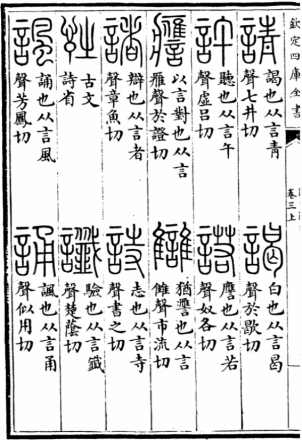 欽定四庫全書
卷三上
請
謁也从言青
聲七井切
謁
白也从言曷
聲於歇切
許
聽也从言午
聲虛吕切
諾
譍也从言若
聲奴各切
譍
以言對也从言
雁聲於證切
讎
猶譍也从言
雔聲市流切
諸
辯也从言者
聲章魚切
詩
志也从言寺
聲書之切
𧥳
古文
詩省
讖
驗也从言韱
聲楚蔭切
諷
誦也从言風
聲芳鳳切
誦
諷也从言甬
聲似用切